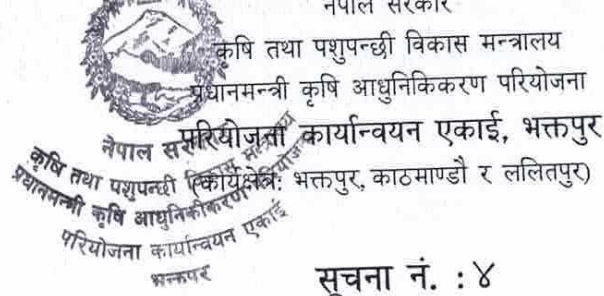 नेपाल सरकार
कृषि तथा पशुपन्छी विकास मन्त्रालय
प्रधानमन्त्री कृषि आधुनिकिकरण परियोजना
परियोजना कार्यान्वयन एकाई, भक्तपुर
(कार्यक्षेत्र: भक्तपुर, काठमाण्डौ र ललितपुर)
नेपाल सरकार
कृषि तथा पशुपन्छी विकास मन्त्रालय
प्रधानमन्त्री कृषि आधुनिकीकरण परियोजना
परियोजना कार्यान्वयन एकाई
भक्तपुर
सूचना नं. : ४